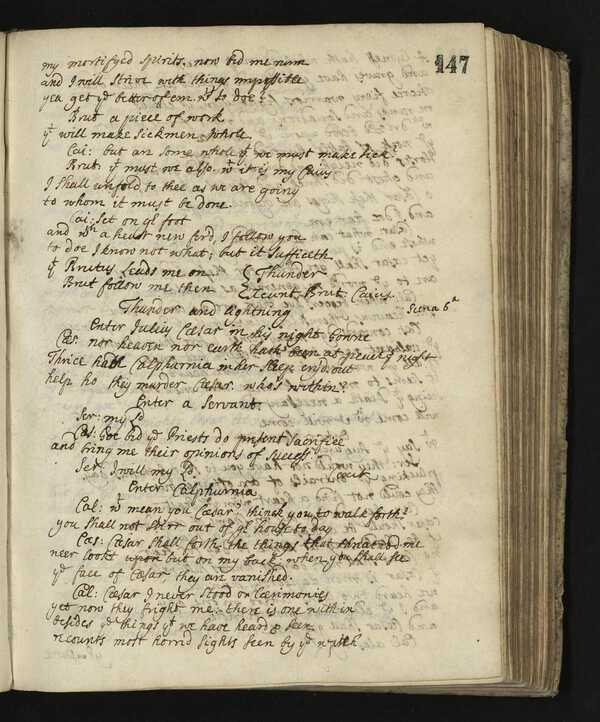 147
my mortifyed spirits. now bid me runn
and I will strive with things impossible
yea get yᵉ better of em. wᵗ to doe?
Brut a piece of work
yᵗ will make sickmen whole
Cai: but are some whole yᵗ we must make sick?
Brut: yᵗ must we also. wᵗ it is my Caius
I shall unfold to thee as we are going
to whom it must be done.
Cai: set on yʳ foot
and wᵗʰ a heart new fir'd, I follow you
to doe I know not what: but it sufficeth
yᵗ Brutus Leads me on. { Thunder
Brut follow me then { Exeunt Brut. Caius.
Thunder and lightning Scena 6ᵃ
Enter Julius Cæsar in his night Gonne
Cæs. nor heaven nor earth hath been at peace yˢ night
Thrice hath Calphurnia in her sleep cry'd out
help ho they murder Cæsar. who's within?
Enter a Servant.
Ser: my Lᵈ
Cæs: Goe bid yᵉ Priests do present Sacrifice
and bring me their opinions of success
Ser. I will my Lᵈ. exit
Enter Calphurnia
Cal: wᵗ mean you Cæsar? think you to walk forth?
you shall not stirr out of yʳ house to day
Cæs: Cæsar shall forth. the things that threatned me
neer lookt upon but on my back. when you shall see
yᵉ face of Cæsar they are vanished.
Cal: Cæsar I never stood on Cærimonies
yet now they fright me: there is one within
besides yᵉ things yᵗ we have heard & seen
recounts most horrid sights seen by yᵉ watch